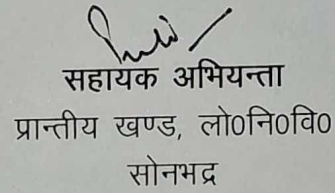 सहायक अभियन्ता
प्रान्तीय खण्ड, लो०नि०वि०
सोनभद्र